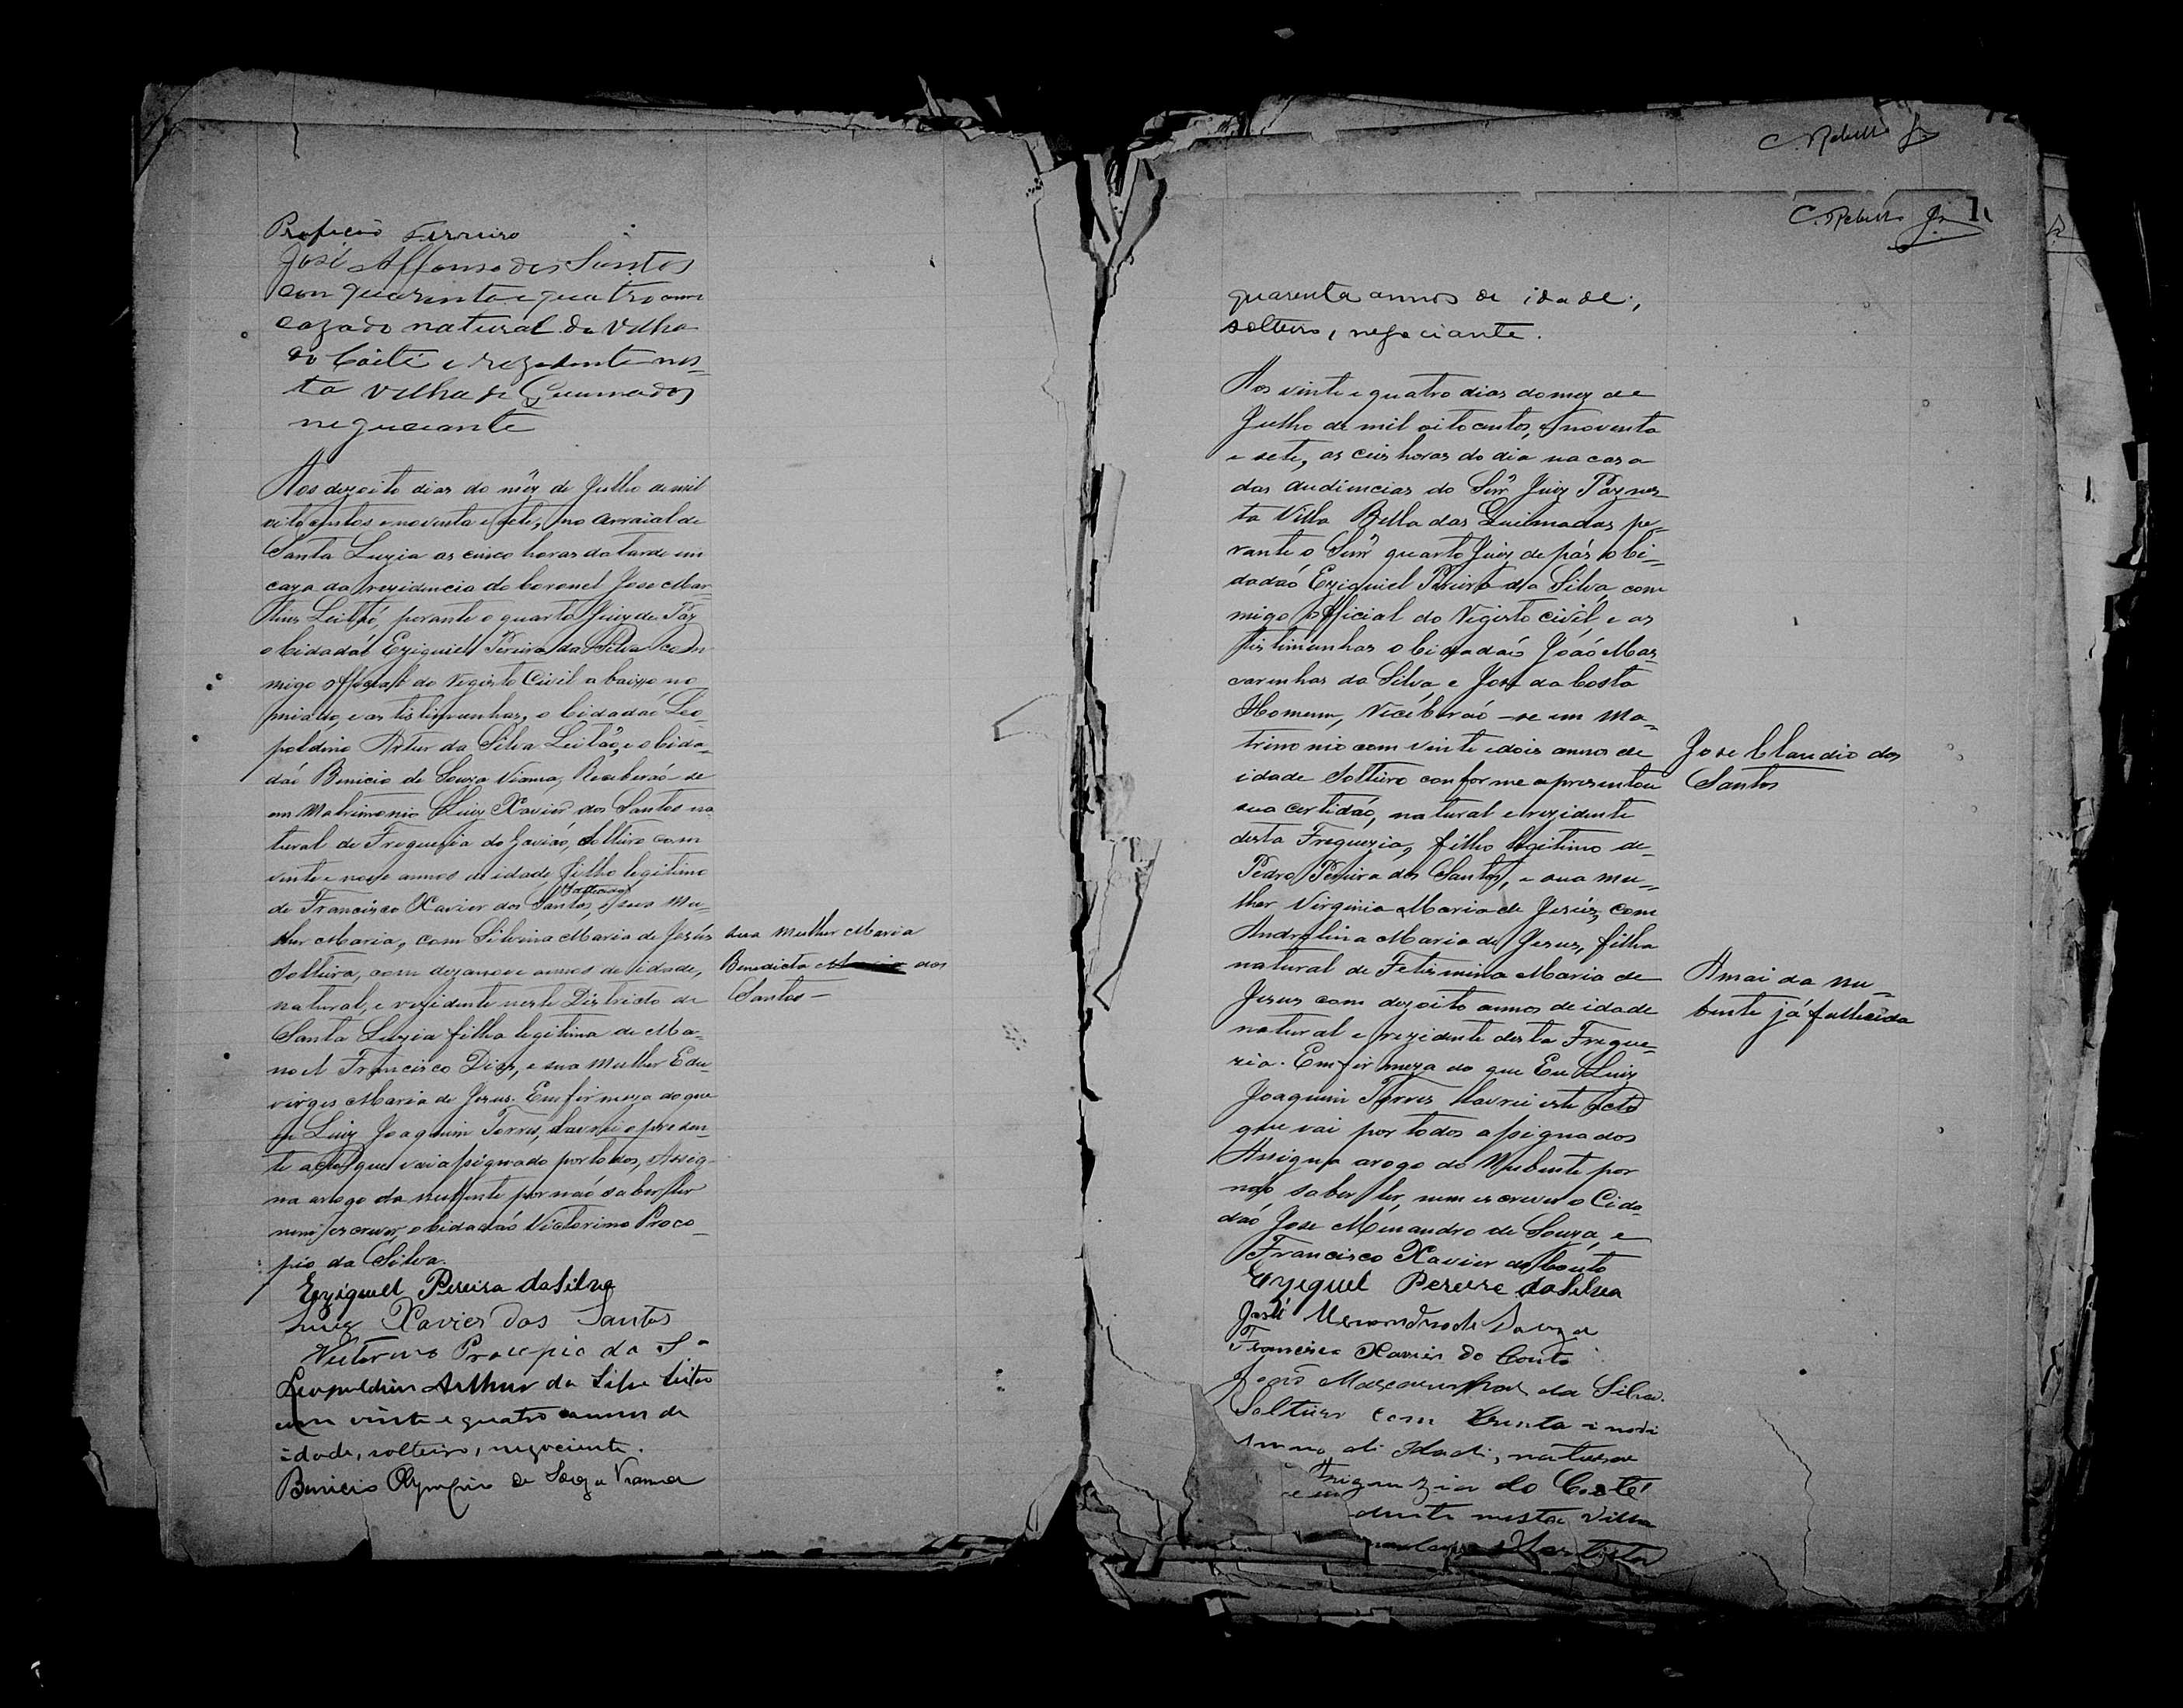 Profição Ferreiro
José Affonso dos Santos
com quarenta e quatro annos
cazado natural da Vilha
do Coité e rezedente nes-
ta Vilha de Queimados
neguciante
Aos dezoito dias do mêz de Julho de mil
oitocentos e noventa e sete, no arraial de
Santa Luzia as cinco horas da tarde em
caza da rezidencia do Coronel Jose Mar-
tins Leitáó, perante o quarto Juiz de Paz
o Cidadáó Eziquiel Pereira da Silva Com-
migo Official do Registo Civil abaixo no-
miado, e as tistimunhas, o Cidadáó Leo-
poldino Artur da Silva Leitão, e o Cida-
dáó Benicio de Souza Vianna, Receberáó-se
em Matrimonio Luiz Xavier dos Santos na-
tural de Freguesia do Gaviáó, Solteiro com
vinte e nove annos de idade filho legitimo
de Francisco Xavier dos Santos, e sua Mu-
lher Maria, com Silvina Maria de Jesús
Solteira, com dezanove annos de idade,
natural, e rezidente neste Districto de
Santa Luzia filha legitima de Ma-
noel Francisco Dias, e sua Mulher Edu-
virges Maria de Jesus. Em firmeza do que
eu Luiz Joaquim Torres, lavrei o presen-
te acto que vai assignado por todos, Assig-
na arogo da nubente por náó saber ler
nem escrever, o Cidadáó Victorino Proco-
pio da Silva.
Eziquiel Pereira da Silva
Luiz Xavier dos Santos
Victorino Procopio da Sª
Leopuldino Arthur da Silva Leitão
com vinte e quatro annos de
idade, solteiro, negociante.
Benicio Olympio de Souza Vianna
sua mulher Maria
Benedicta dos
Santos-
C. Rebello Jr
C. Rebello Jr
quarenta annos de idade,
solteiro, negociante.
Aos vinte e quatro dias do mez de
Julho de mil oitocentos, e noventa
e sete, as ceis horas do dia na casa
das audiencias do Senr Juiz Paz nes-
ta Villa Bella das Queimadas pe-
rante o Senr quarto Juiz de páz o Ci-
dadáó Eziquiel Pereira da Silva, com
migo Official do Registo civil, e as
tistimunhas o Cidadáó Joáó Mas-
carinhas da Silva, e Jose da Costa
Homem, Recéberáó-se em Ma-
trimonio com vinte e dois annos de
idade Solteiro conforme apresentou
sua certidáó, natural e rezidente
desta Freguezia, filho legitimo de
Pedro Pereira dos Santos, e sua mu-
lher Virginia Maria de Jesús, com
Andrelina Maria de Jesus, filha
natural de Felismina Maria de
Jesus com dezoito annos de idade
natural e rezidente desta Fregue-
zia. Em firmeza do que Eu Luiz
Joaquim Torres lavrei este acto
que vai por todos assignados
Assigna arogo do Nubente por
não saber ler, nem escrever o Cida-
dáó Jose Menandro de Souza, e
Francisco Xavier do Couto
Eziquiel Pereira da Silva
José Menandro de Souza
Francisco Xavier do Couto
João Mascarenhas da Silva.
Solteiro com trinta e novi
annos di Idadi, natural
Friguezia do Coité
dente nesta Villa
Jose Claudio dos
Santos
A mai da nu-
bente já fallecida